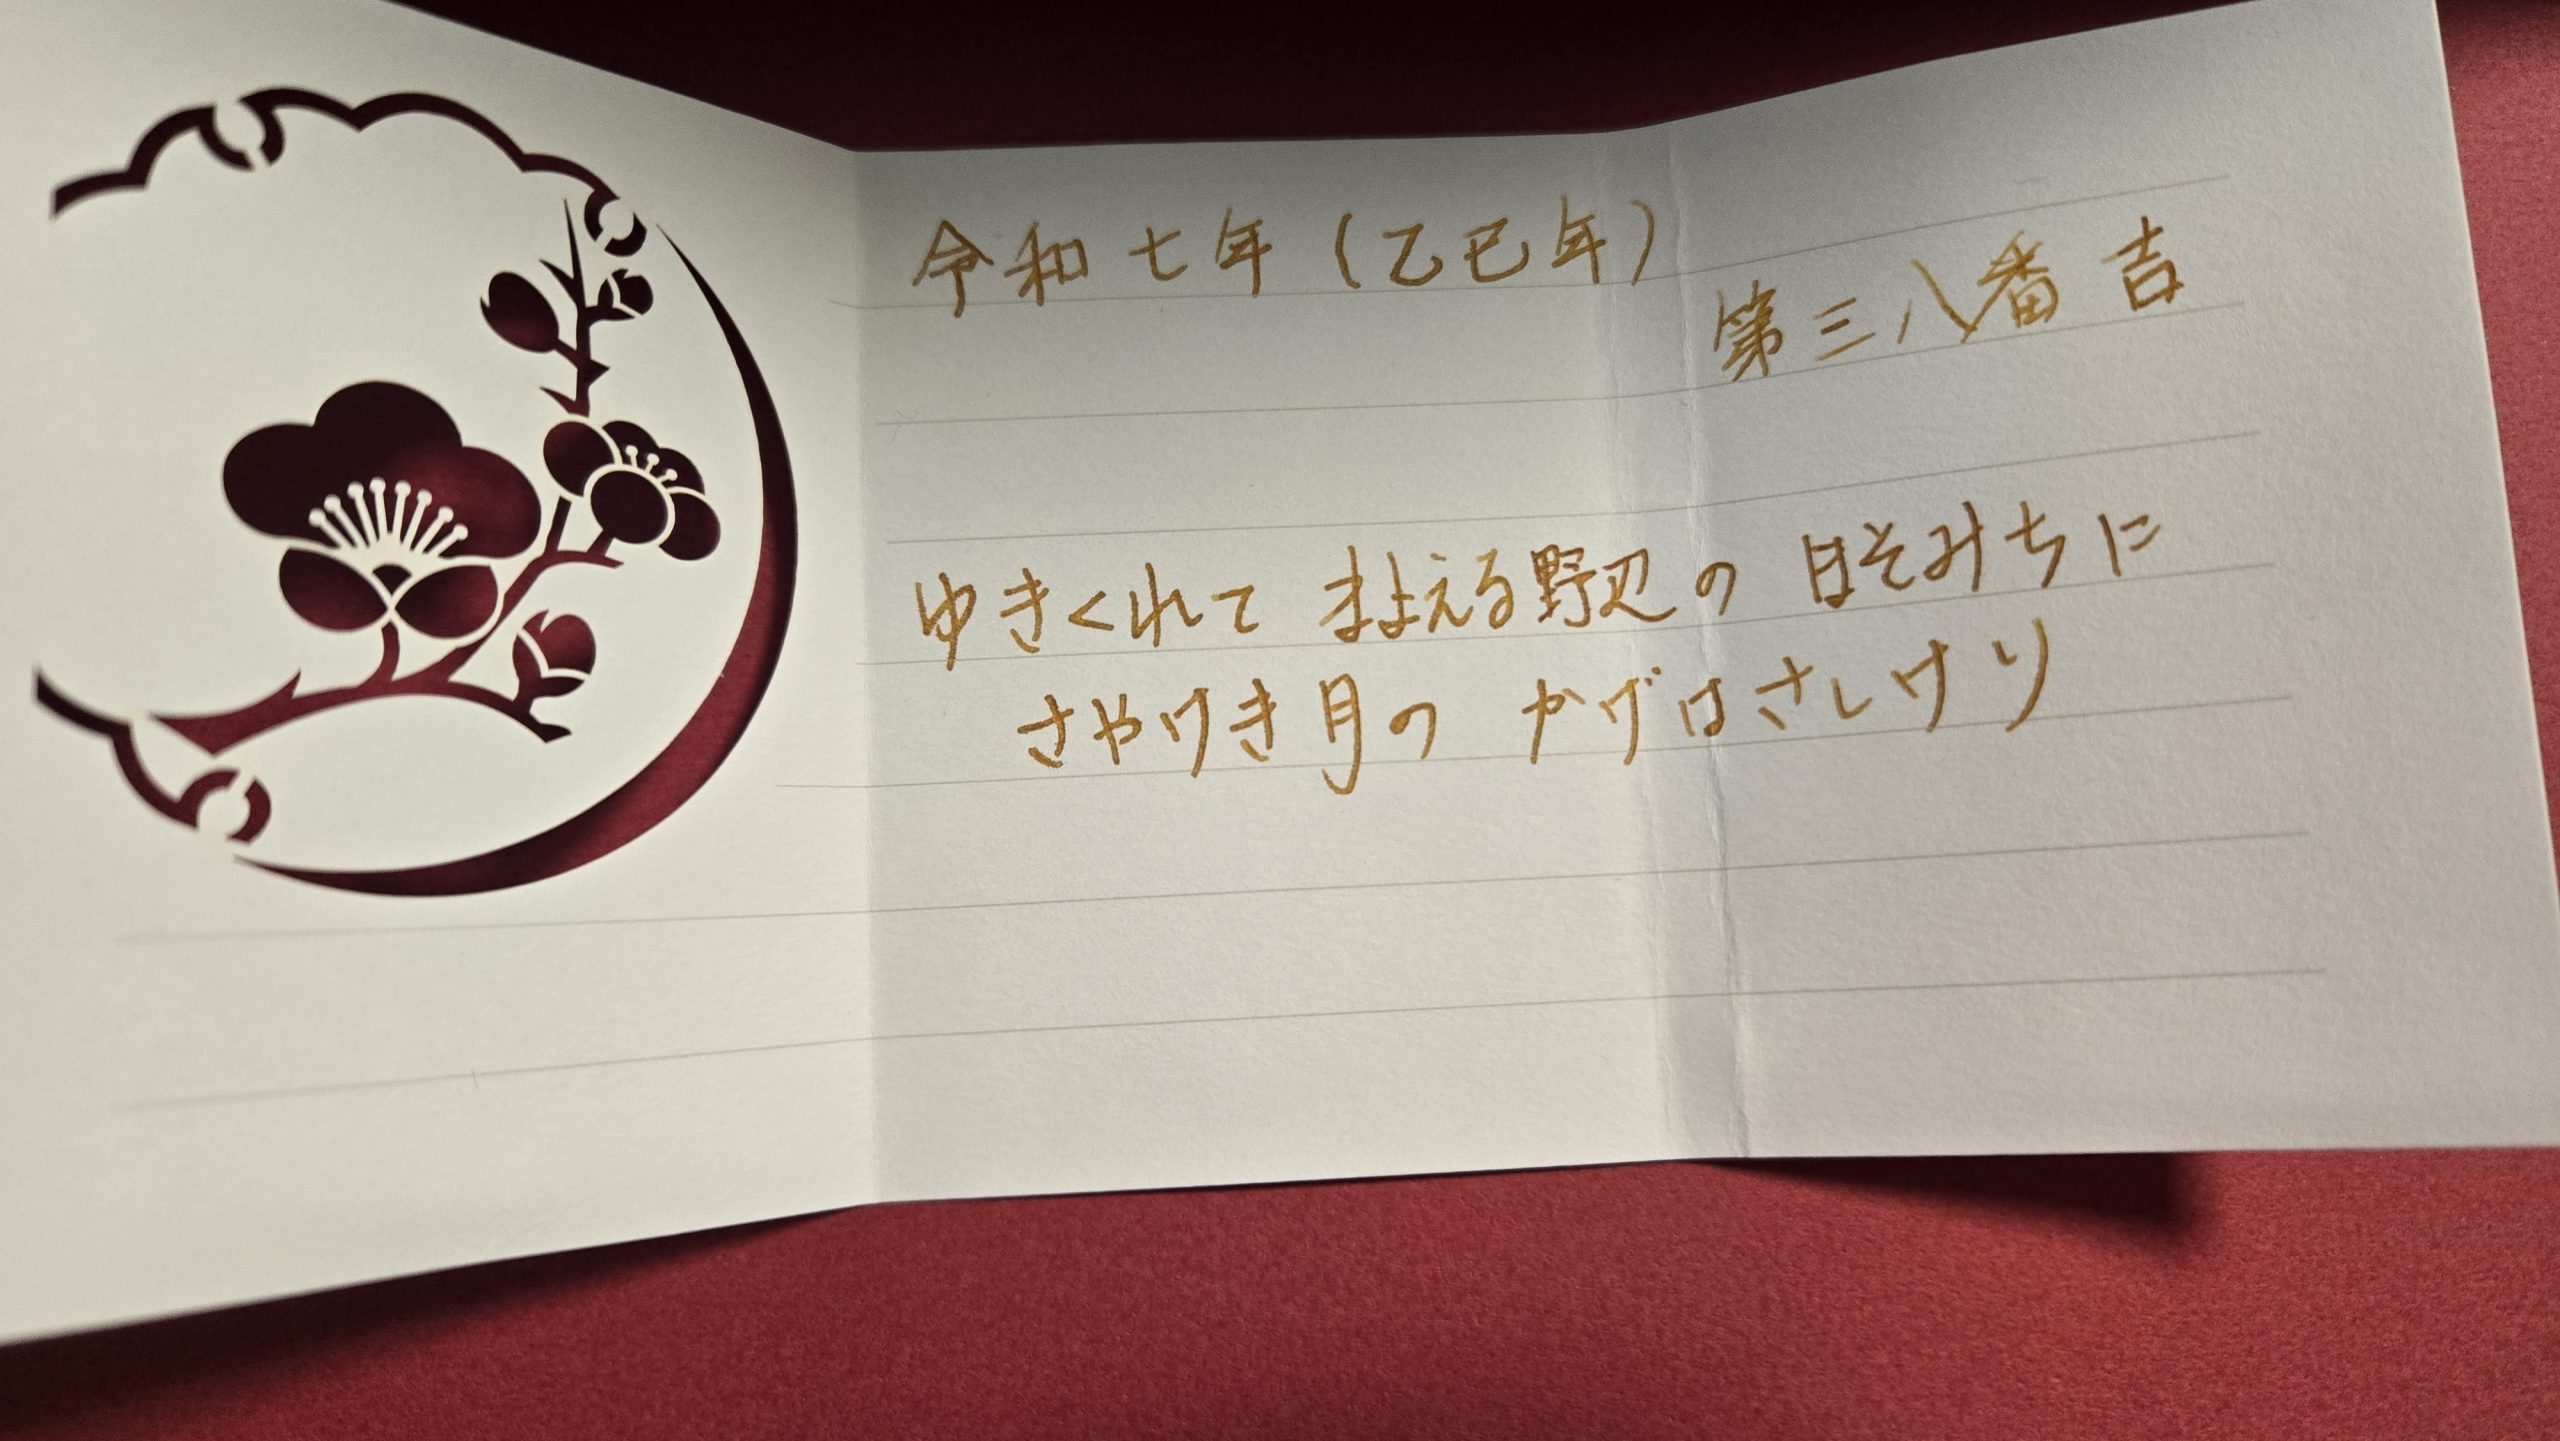 令和七年（乙巳年）
第三八番 吉
ゆきくれて まよえる野辺の ほそみちに
さやけき月の かげはさしけり